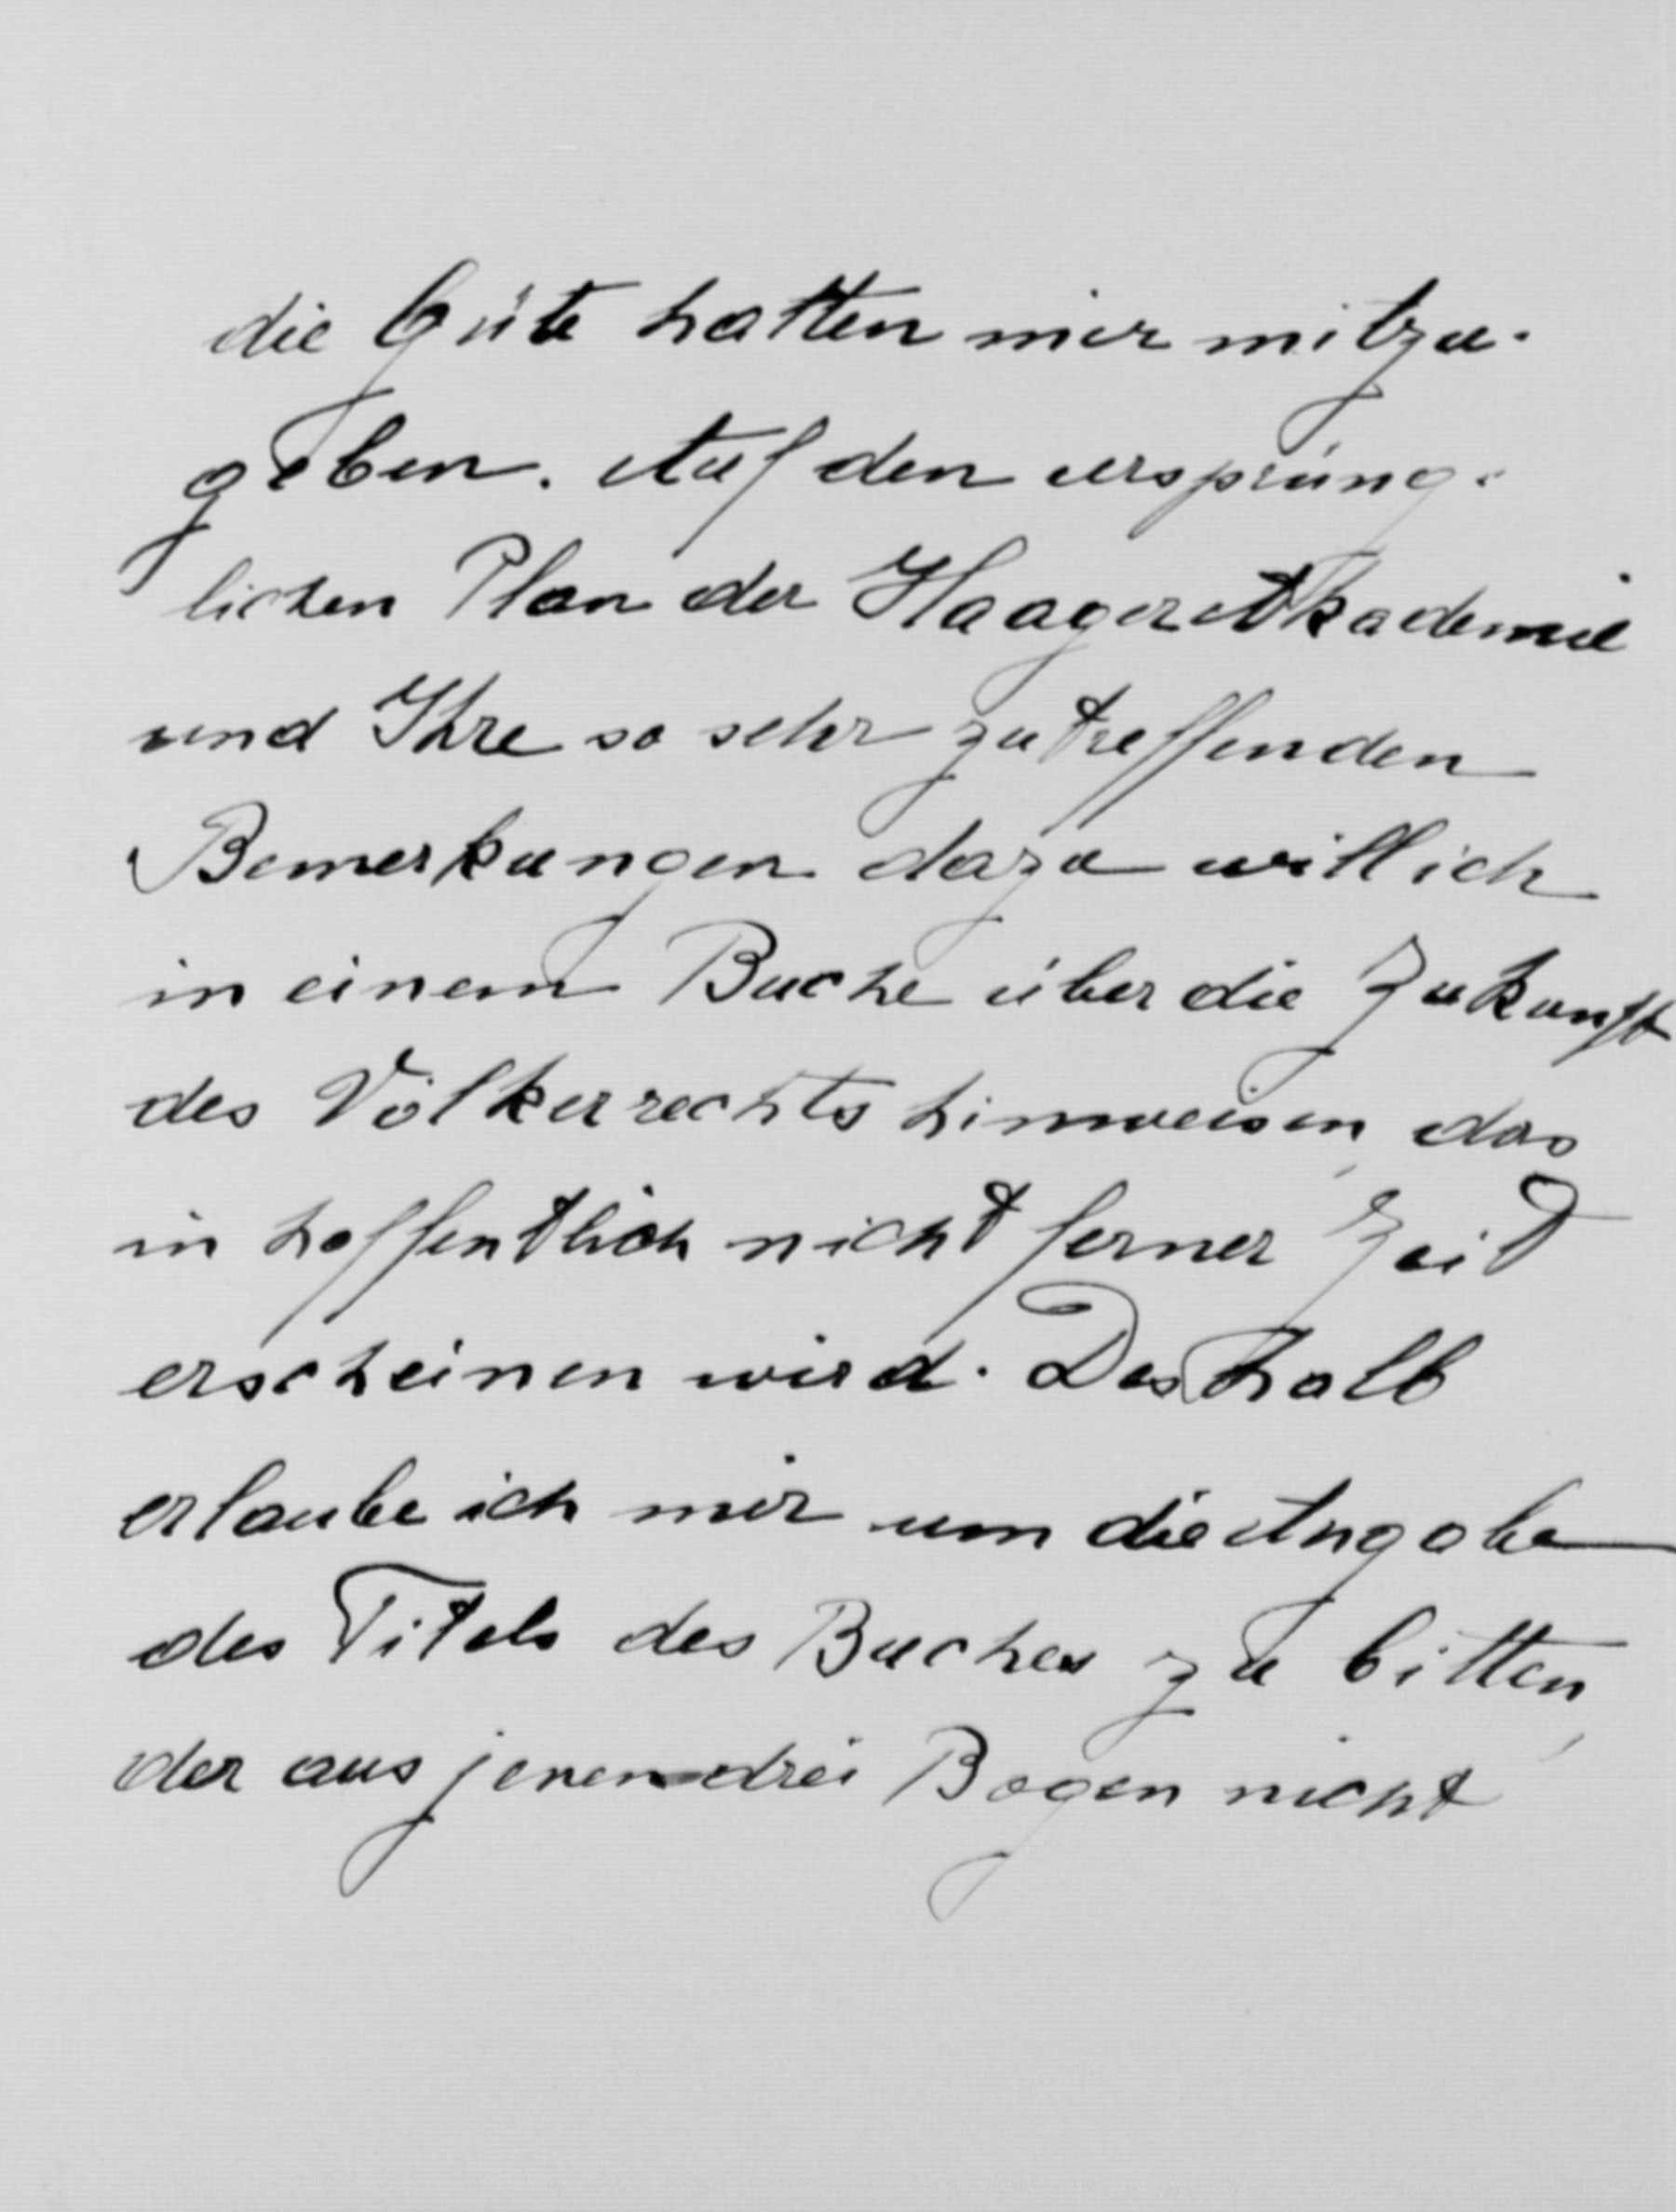 die Güte hatten mir mitzu-
geben. Auf den ursprüng-
lichen Plan der Haager Akademie
und Ihre so sehr zutreffenden
Bemerkungen dazu will ich
in einem Buche über die Zukunft
des Völkerrechts hinweisen, das
in hoffentlich nicht ferner Zeit
erscheinen wird. Deshalb
erlaube ich mir um die Angabe
des Titels des Buches zu bitten,
der aus jenen drei Bogen nicht